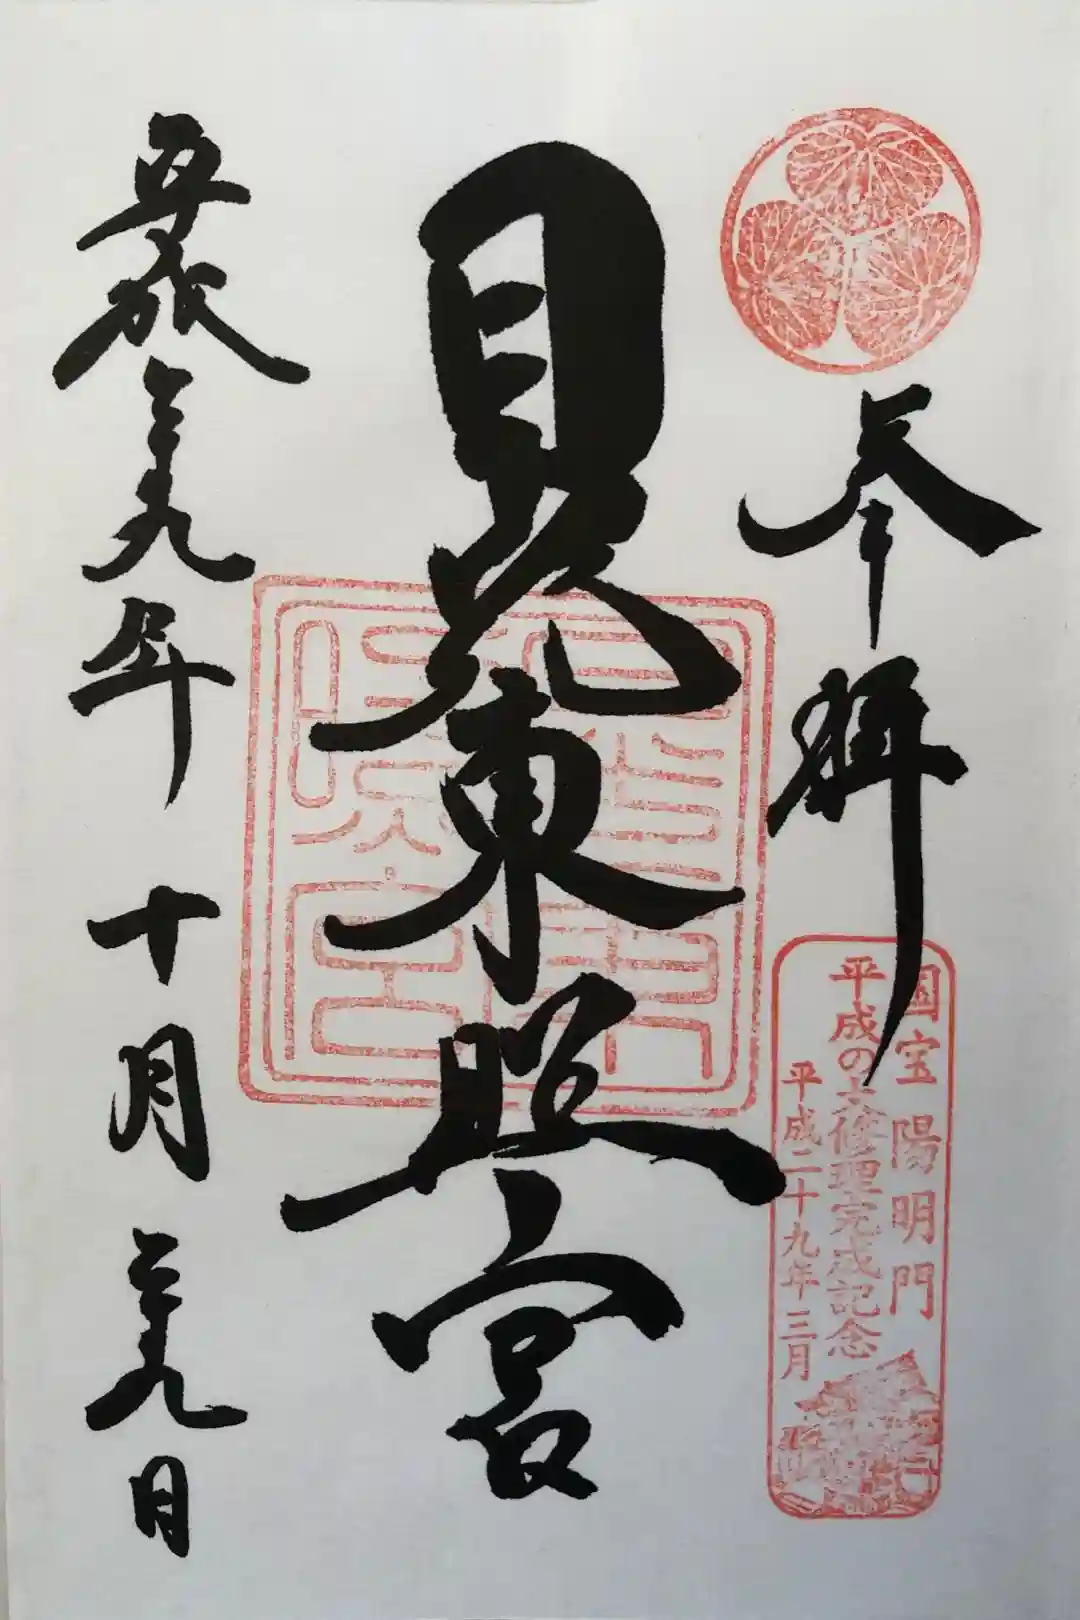 奉拝
国宝 陽明門
平成の大修理完成記念
平成二十九年三月
日光東照宮
平成二十九年 十月 二十九日